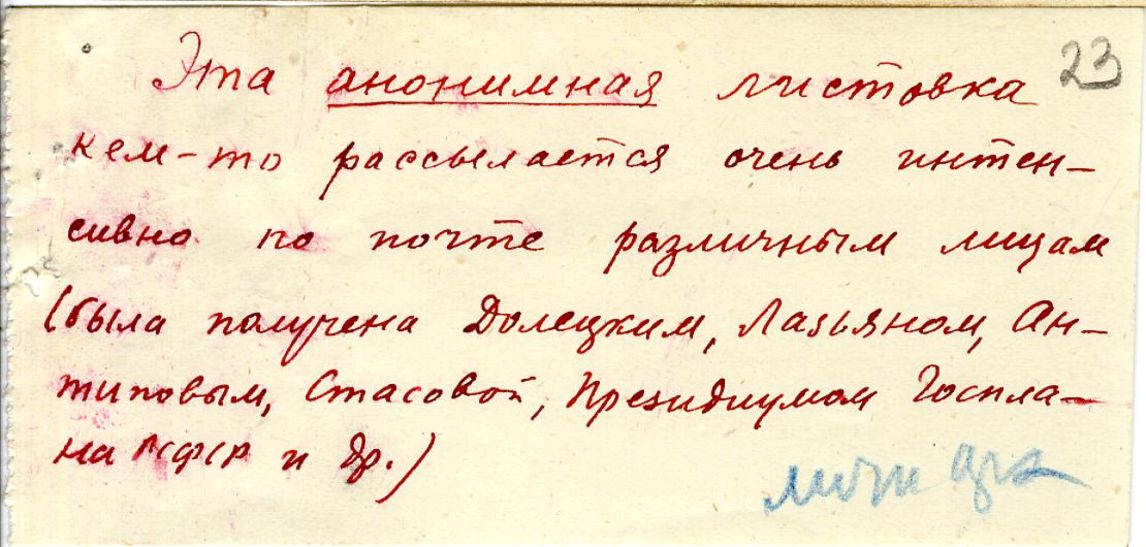 23
Эта анонимная листовка
кем-то рассылается очень интен-
сивно по почте различным лицам
(была получена Долецким, Лазьяном, Ан-
типовым, Стасовой, Президиумом Госпла-
на РСФСР и др.)